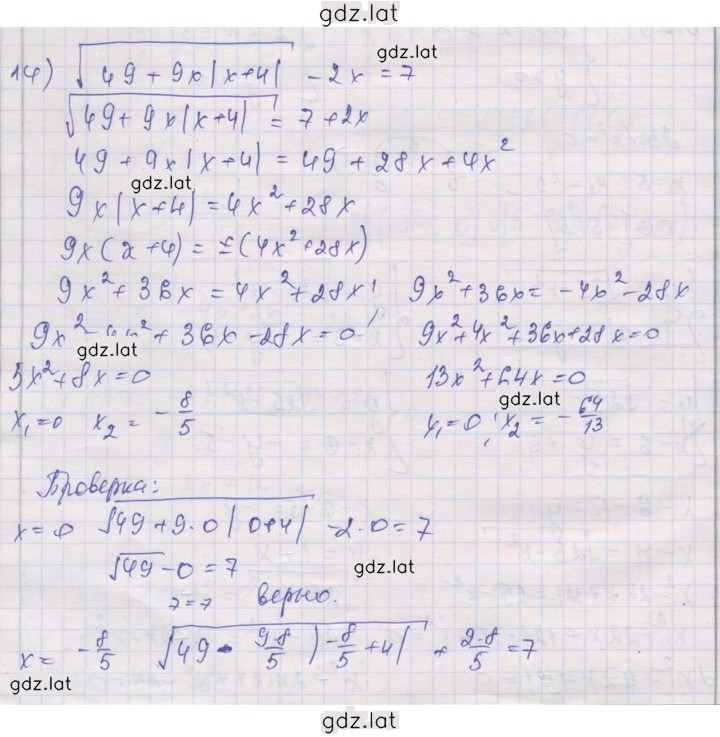 gdz.lat
14) √(49 + 9x|x+4|) - 2x = 7
gdz.lat
√(49 + 9x|x+4|) = 7 + 2x
49 + 9x|x+4| = 49 + 28x + 4x²
gdz.lat
9x|x+4| = 4x² + 28x
9x(x+4) = ±(4x² + 28x)
9x² + 36x = 4x² + 28x; 9x² + 36x = -4x² - 28x
9x² - 4x² + 36x - 28x = 0; 9x² + 4x² + 36x + 28x = 0
gdz.lat
5x² + 8x = 0 13x² + 64x = 0
gdz.lat
x₁ = 0 x₂ = -8/5 x₁ = 0; x₂ = -64/13
Проверка:
x = 0 √(49 + 9·0|0+4|) - 2·0 = 7
√49 - 0 = 7
gdz.lat
7 = 7 верно.
x = -8/5 √(49 - 9·8/5 |-8/5 + 4|) + 2·8/5 = 7
gdz.lat
gdz.lat